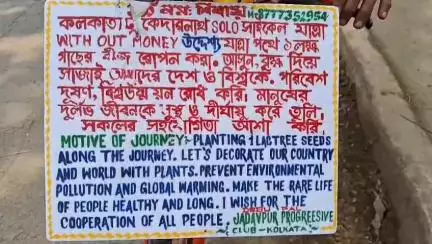 ওঁ নমঃ শিবায় M-8777352954
কলকাতা টু কেদারনাথ SOLO সাইকেল যাত্রা
WITH OUT MONEY উদ্দেশ্য যাত্রা পথে ১ লক্ষ
গাছের বীজ রোপন করা। আসুন, বৃক্ষ দিয়ে
সাজাই আমাদের দেশ ও বিশ্বকে। পরিবেশ
দূষণ, বিশ্বউষ্ণায়ন রোধ করি। মানুষের
দূর্লভ জীবনকে সুস্থ ও দীর্ঘায়ু করে তুলি,
সকলের সহযোগিতা আশা করি
MOTIVE OF JOURNEY:- PLANTING 1 LAC TREE SEEDS
ALONG THE JOURNEY. LET'S DECORATE OUR COUNTRY
AND WORLD WITH PLANTS. PREVENT ENVIRONMENTAL
POLLUTION AND GLOBAL WARMING. MAKE THE RARE LIFE
OF PEOPLE HEALTHY AND LONG. I WISH FOR THE
COOPERATION OF ALL PEOPLE, JADAVPUR PROGREESIVE
CLUB-KOLKATA